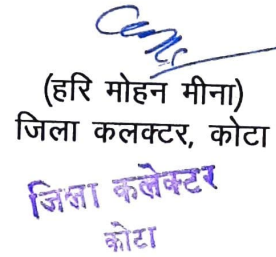 (हरि मोहन मीना)
जिला कलक्टर, कोटा
जिला कलेक्टर
कोटा